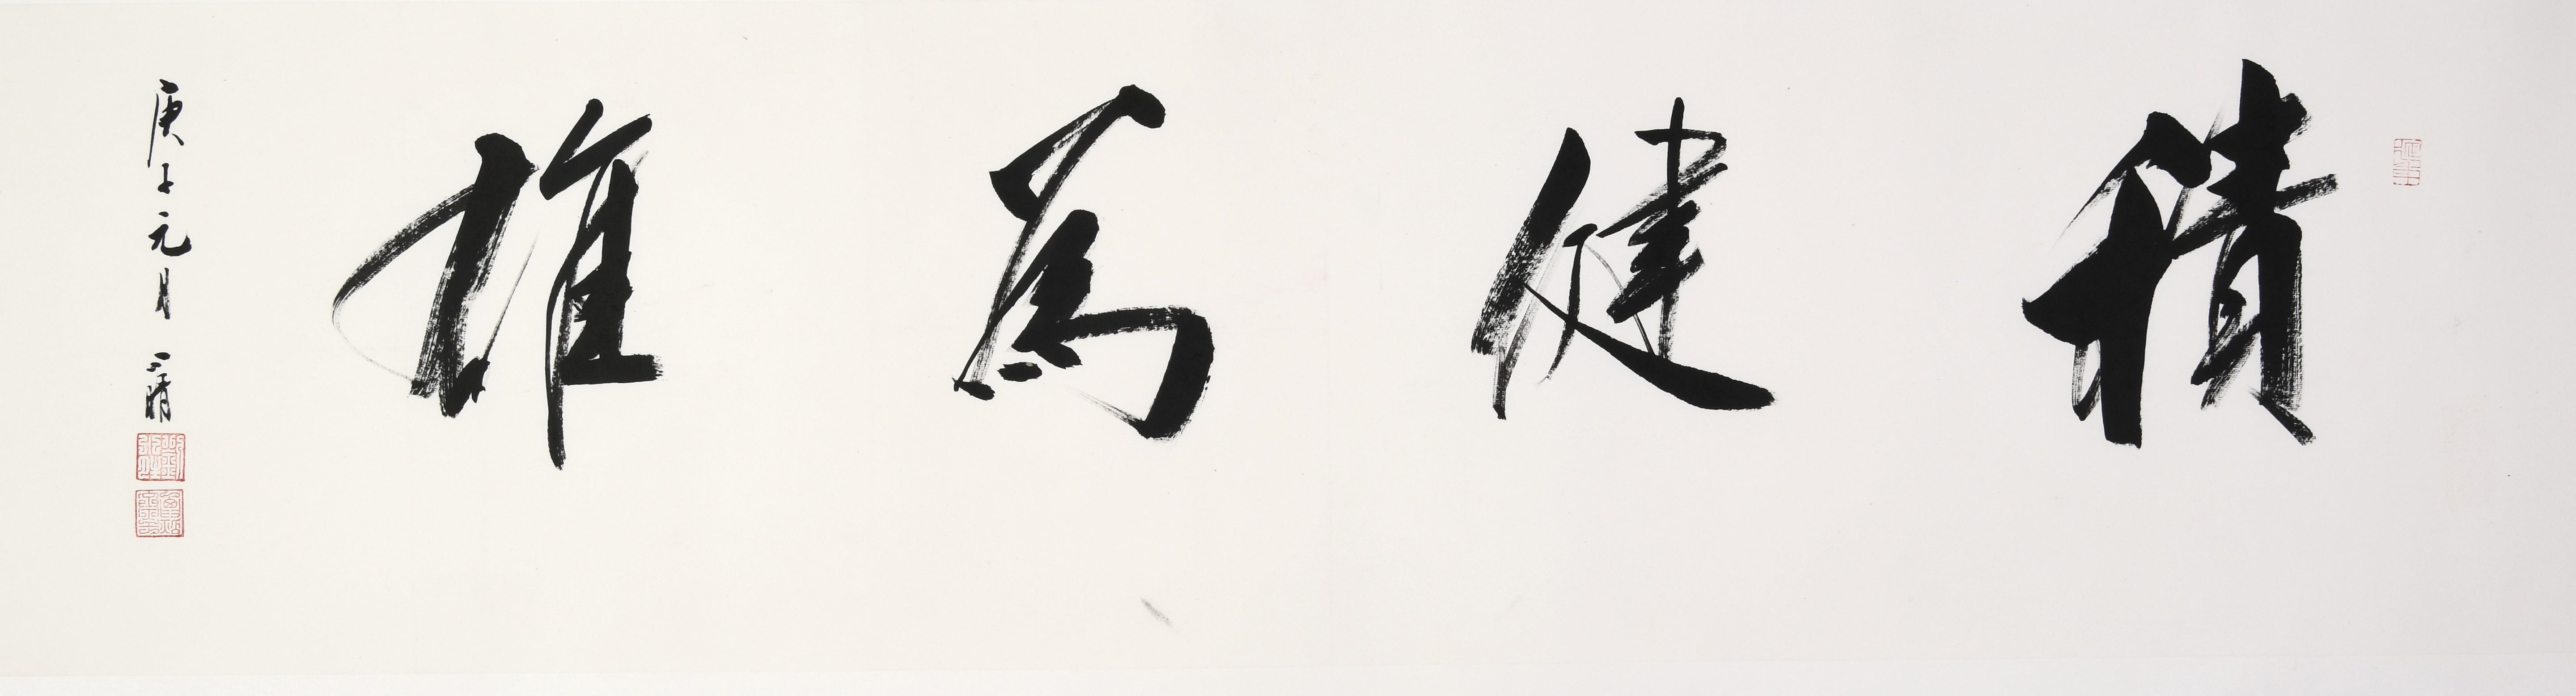 積健為雄
庚子元月